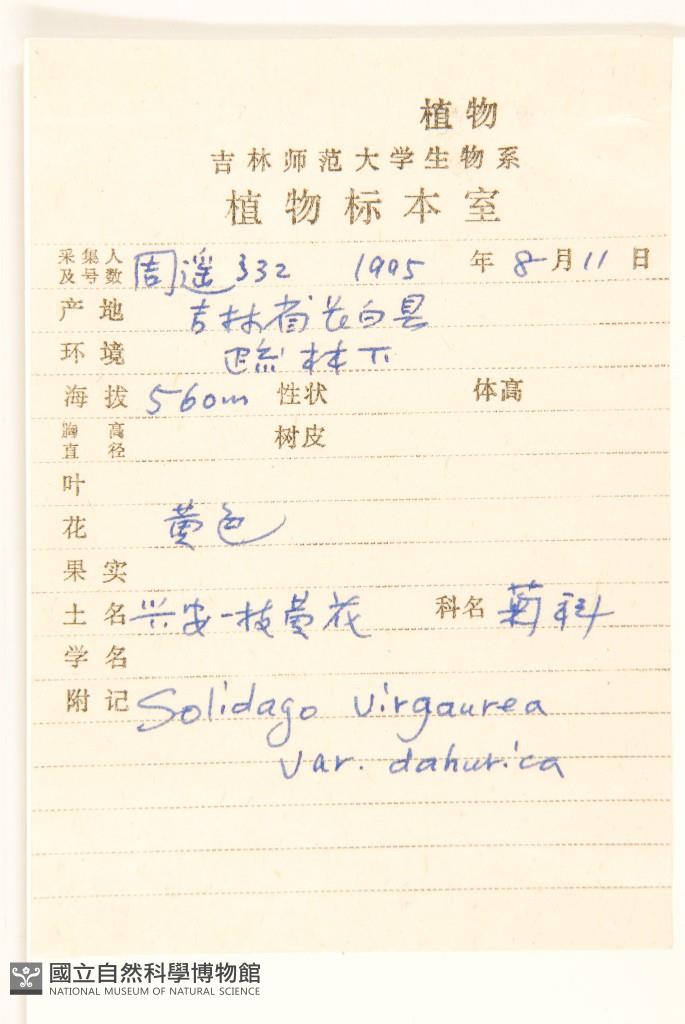 植物
吉林师范大学生物系
植物标本室
采集人及号数 周遥 332 1995 年 8 月 11 日
产地 吉林省长白县
环境 疏林下
海拔 560m 性状 体高
胸高直径 树皮
叶
花 黄色
果实
土名 兴安一枝黄花 科名 菊科
学名
附记 Solidago virgaurea
var. dahurica
國立自然科學博物館
NATIONAL MUSEUM OF NATURAL SCIENCE